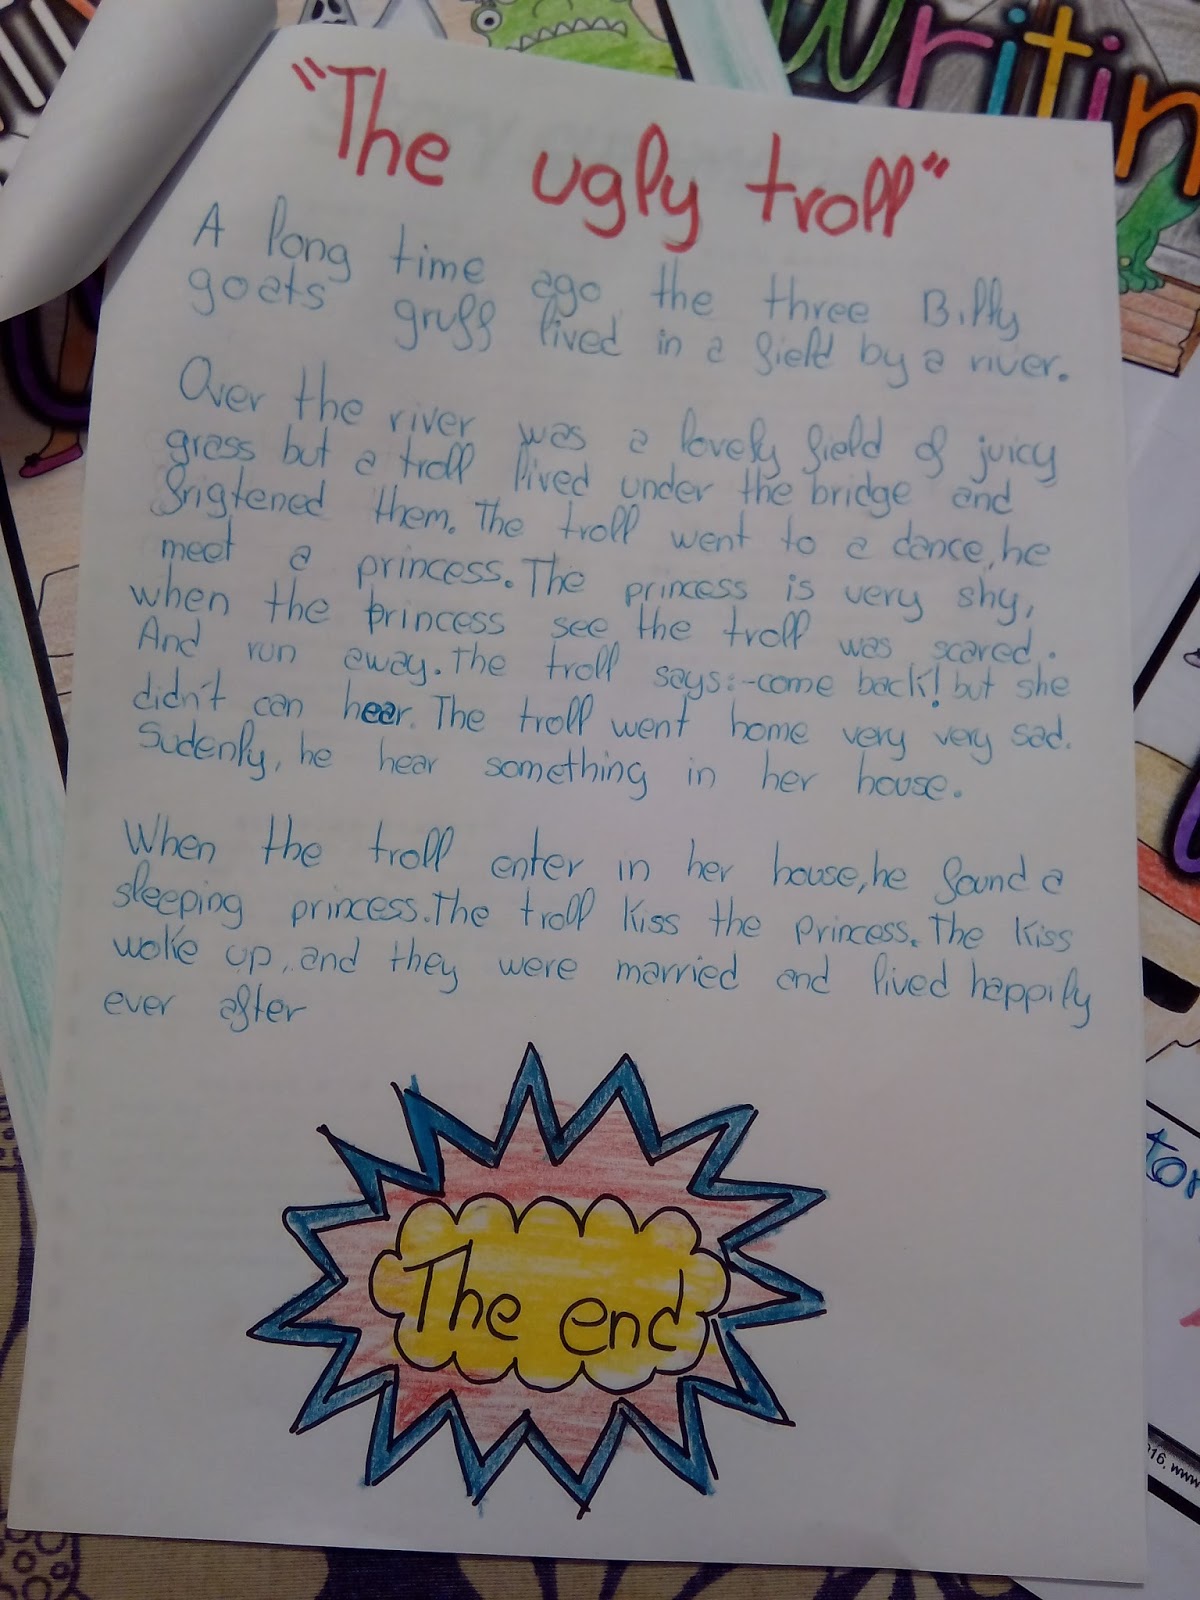 Writin
"The ugly troll"
A long time ago, the three Billy
goats gruff lived in a field by a river.
Over the river was a lovely field of juicy
grass but a troll lived under the bridge and
frigtened them. The troll went to a dance, he
meet a princess. The princess is very shy,
when the princess see the troll was scared.
And run away. The troll says:-come back! but she
didn't can hear. The troll went home very very sad.
Sudenly, he hear something in her house.
When the troll enter in her house, he found a
sleeping princess. The troll kiss the princess. The kiss
woke up, and they were married and lived happily
ever after
The end
16, www